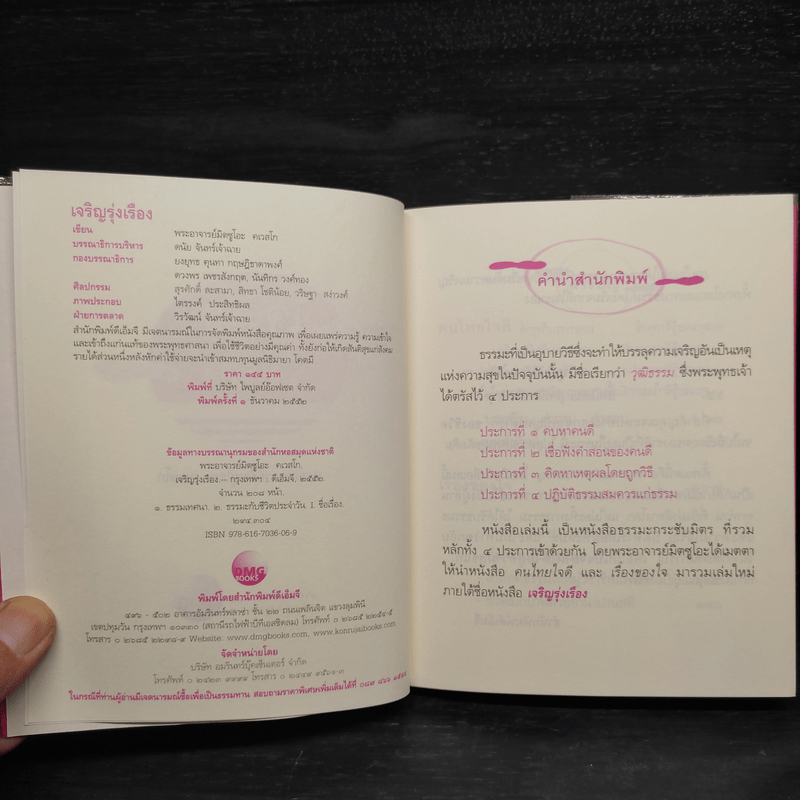 เจริญรุ่งเรือง
เขียน พระอาจารย์มิตซูโอะ คเวสโก
บรรณาธิการบริหาร ดนัย จันทร์เจ้าฉาย
กองบรรณาธิการ ยงยุทธ คุนทา กฤษฎิชาตาพงศ์
ดวงพร เพชรสังกฤต, นันทิกร วงศ์ทอง
ศิลปกรรม สุรศักดิ์ ละลามา, สิทธา โชติน้อย, วริษฐา สง่าวงศ์
ภาพประกอบ ไตรรงค์ ประสิทธิผล
ฝ่ายการตลาด วิรวัฒน์ จันทร์เจ้าฉาย
สำนักพิมพ์ดีเอ็มจี มีเจตนารมณ์ในการจัดพิมพ์หนังสือคุณภาพ เพื่อเผยแพร่ความรู้ ความเข้าใจ
และเข้าถึงแก่นแท้ของพระพุทธศาสนา เพื่อใช้ชีวิตอย่างมีคุณค่า ทั้งยังก่อให้เกิดสันติสุขแก่สังคม
รายได้ส่วนหนึ่งหลังหักค่าใช้จ่ายจะนำเข้าสมทบทุนมูลนิธิมายา โคตมี
ราคา ๑๔๕ บาท
พิมพ์ที่ บริษัท ไพบูลย์อ๊อฟเซต จำกัด
พิมพ์ครั้งที่ ๑ ธันวาคม ๒๕๕๒
ข้อมูลทางบรรณานุกรมของสำนักหอสมุดแห่งชาติ
พระอาจารย์มิตซูโอะ คเวสโก.
เจริญรุ่งเรือง.-- กรุงเทพฯ : ดีเอ็มจี, ๒๕๕๒.
จำนวน ๒๐๘ หน้า.
๑. ธรรมเทศนา. ๒. ธรรมะกับชีวิตประจำวัน. I. ชื่อเรื่อง.
๒๙๔.๓๐๔
ISBN 978-616-7036-06-9
DMG
BOOKS
พิมพ์โดยสำนักพิมพ์ดีเอ็มจี
๔๙๖ - ๕๐๒ อาคารอัมรินทร์พลาซ่า ชั้น ๒๒ ถนนเพลินจิต แขวงลุมพินี
เขตปทุมวัน กรุงเทพฯ ๑๐๓๓๐ (สถานีรถไฟฟ้าบีทีเอสชิดลม) โทรศัพท์ ๐ ๒๖๘๕ ๒๒๕๔-๕
โทรสาร ๐ ๒๖๘๕ ๒๒๙๘-๙ Website: www.dmgbooks.com, www.konrujaibooks.com
จัดจำหน่ายโดย
บริษัท อมรินทร์บุ๊คเซ็นเตอร์ จำกัด
โทรศัพท์ ๐ ๒๔๒๓ ๙๙๙๙ โทรสาร ๐ ๒๔๔๙ ๙๕๖๑-๓
ในกรณีที่ท่านผู้อ่านมีเจตนารมณ์ซื้อเพื่อเป็นธรรมทาน สอบถามราคาพิเศษเพิ่มเติมได้ที่
คำนำสำนักพิมพ์
ธรรมะที่เป็นอุบายวิธีซึ่งจะทำให้บรรลุความเจริญอันเป็นเหตุ
แห่งความสุขในปัจจุบันนั้น มีชื่อเรียกว่า วุฒิธรรม ซึ่งพระพุทธเจ้า
ได้ตรัสไว้ ๔ ประการ
ประการที่ ๑ คบหาคนดี
ประการที่ ๒ เชื่อฟังคำสอนของคนดี
ประการที่ ๓ คิดหาเหตุผลโดยถูกวิธี
ประการที่ ๔ ปฏิบัติธรรมสมควรแก่ธรรม
หนังสือเล่มนี้ เป็นหนังสือธรรมะกระชับมิตร ที่รวม
หลักทั้ง ๔ ประการเข้าด้วยกัน โดยพระอาจารย์มิตซูโอะได้เมตตา
ให้นำหนังสือ คนไทยใจดี และ เรื่องของใจ มารวมเล่มใหม่
ภายใต้ชื่อหนังสือ เจริญรุ่งเรือง